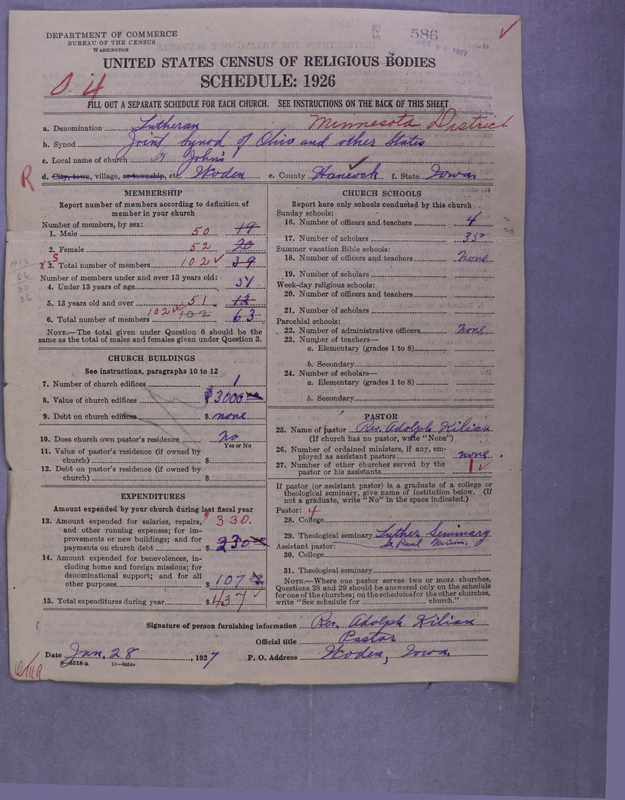 DEPARTMENT OF COMMERCE
BUREAU OF THE CENSUS
WASHINGTON
586
UNITED STATES CENSUS OF RELIGIOUS BODIES
SCHEDULE: 1926
FILL OUT A SEPARATE SCHEDULE FOR EACH CHURCH. SEE INSTRUCTIONS ON THE BACK OF THIS SHEET
Minnesota District
a. Denomination Lutheran
b. Synod Joint Synod of Ohio and other States
c. Local name of church St Johns
d. City, town, village, or township, etc. Woden e. County Hancock f. State Iowa
MEMBERSHIP
Report number of members according to definition of
member in your church
Number of members, by sex:
1. Male 50 19
2. Female 52 20
3. Total number of members 102 39
Number of members under and over 13 years old:
4. Under 13 years of age 51
5. 13 years old and over 51 12
6. Total number of members 102 102 63
NOTE.—The total given under Question 6 should be the
same as the total of males and females given under Question 3.
CHURCH BUILDINGS
See instructions, paragraphs 10 to 12
7. Number of church edifices 1
8. Value of church edifices $3000
9. Debt on church edifices $ none
10. Does church own pastor's residence No
Yes or No
11. Value of pastor's residence (if owned by
church) $
12. Debt on pastor's residence (if owned by
church) $
EXPENDITURES
Amount expended by your church during last fiscal year
13. Amount expended for salaries, repairs, $330.
and other running expenses; for im-
provements or new buildings; and for
payments on church debt $230
14. Amount expended for benevolences, in-
cluding home and foreign missions; for
denominational support; and for all
other purposes $107
15. Total expenditures during year $437
CHURCH SCHOOLS
Report here only schools conducted by this church
Sunday schools:
16. Number of officers and teachers 4
17. Number of scholars 35
Summer vacation Bible schools:
18. Number of officers and teachers None
19. Number of scholars
Week-day religious schools:
20. Number of officers and teachers
21. Number of scholars
Parochial schools:
22. Number of administrative officers None
23. Number of teachers—
a. Elementary (grades 1 to 8)
b. Secondary
24. Number of scholars—
a. Elementary (grades 1 to 8)
b. Secondary
PASTOR
25. Name of pastor Rev. Adolph Kilian
(If church has no pastor, write "None")
26. Number of ordained ministers, if any, em-
ployed as assistant pastors none
27. Number of other churches served by the
pastor or his assistants 1
If pastor (or assistant pastor) is a graduate of a college or
theological seminary, give name of institution below. (If
not a graduate, write "No" in the space indicated.)
Pastor: 4
28. College
29. Theological seminary Luther Seminary
Assistant pastor: St Paul Minn.
30. College
31. Theological seminary
NOTE.—Where one pastor serves two or more churches,
Questions 28 and 29 should be answered only on the schedule
for one of the churches; on the schedules for the other churches,
write "See schedule for church."
Signature of person furnishing information Rev. Adolph Kilian
Official title Pastor
Date Jan. 28, 1927 P. O. Address Woden, Iowa.
11—9504